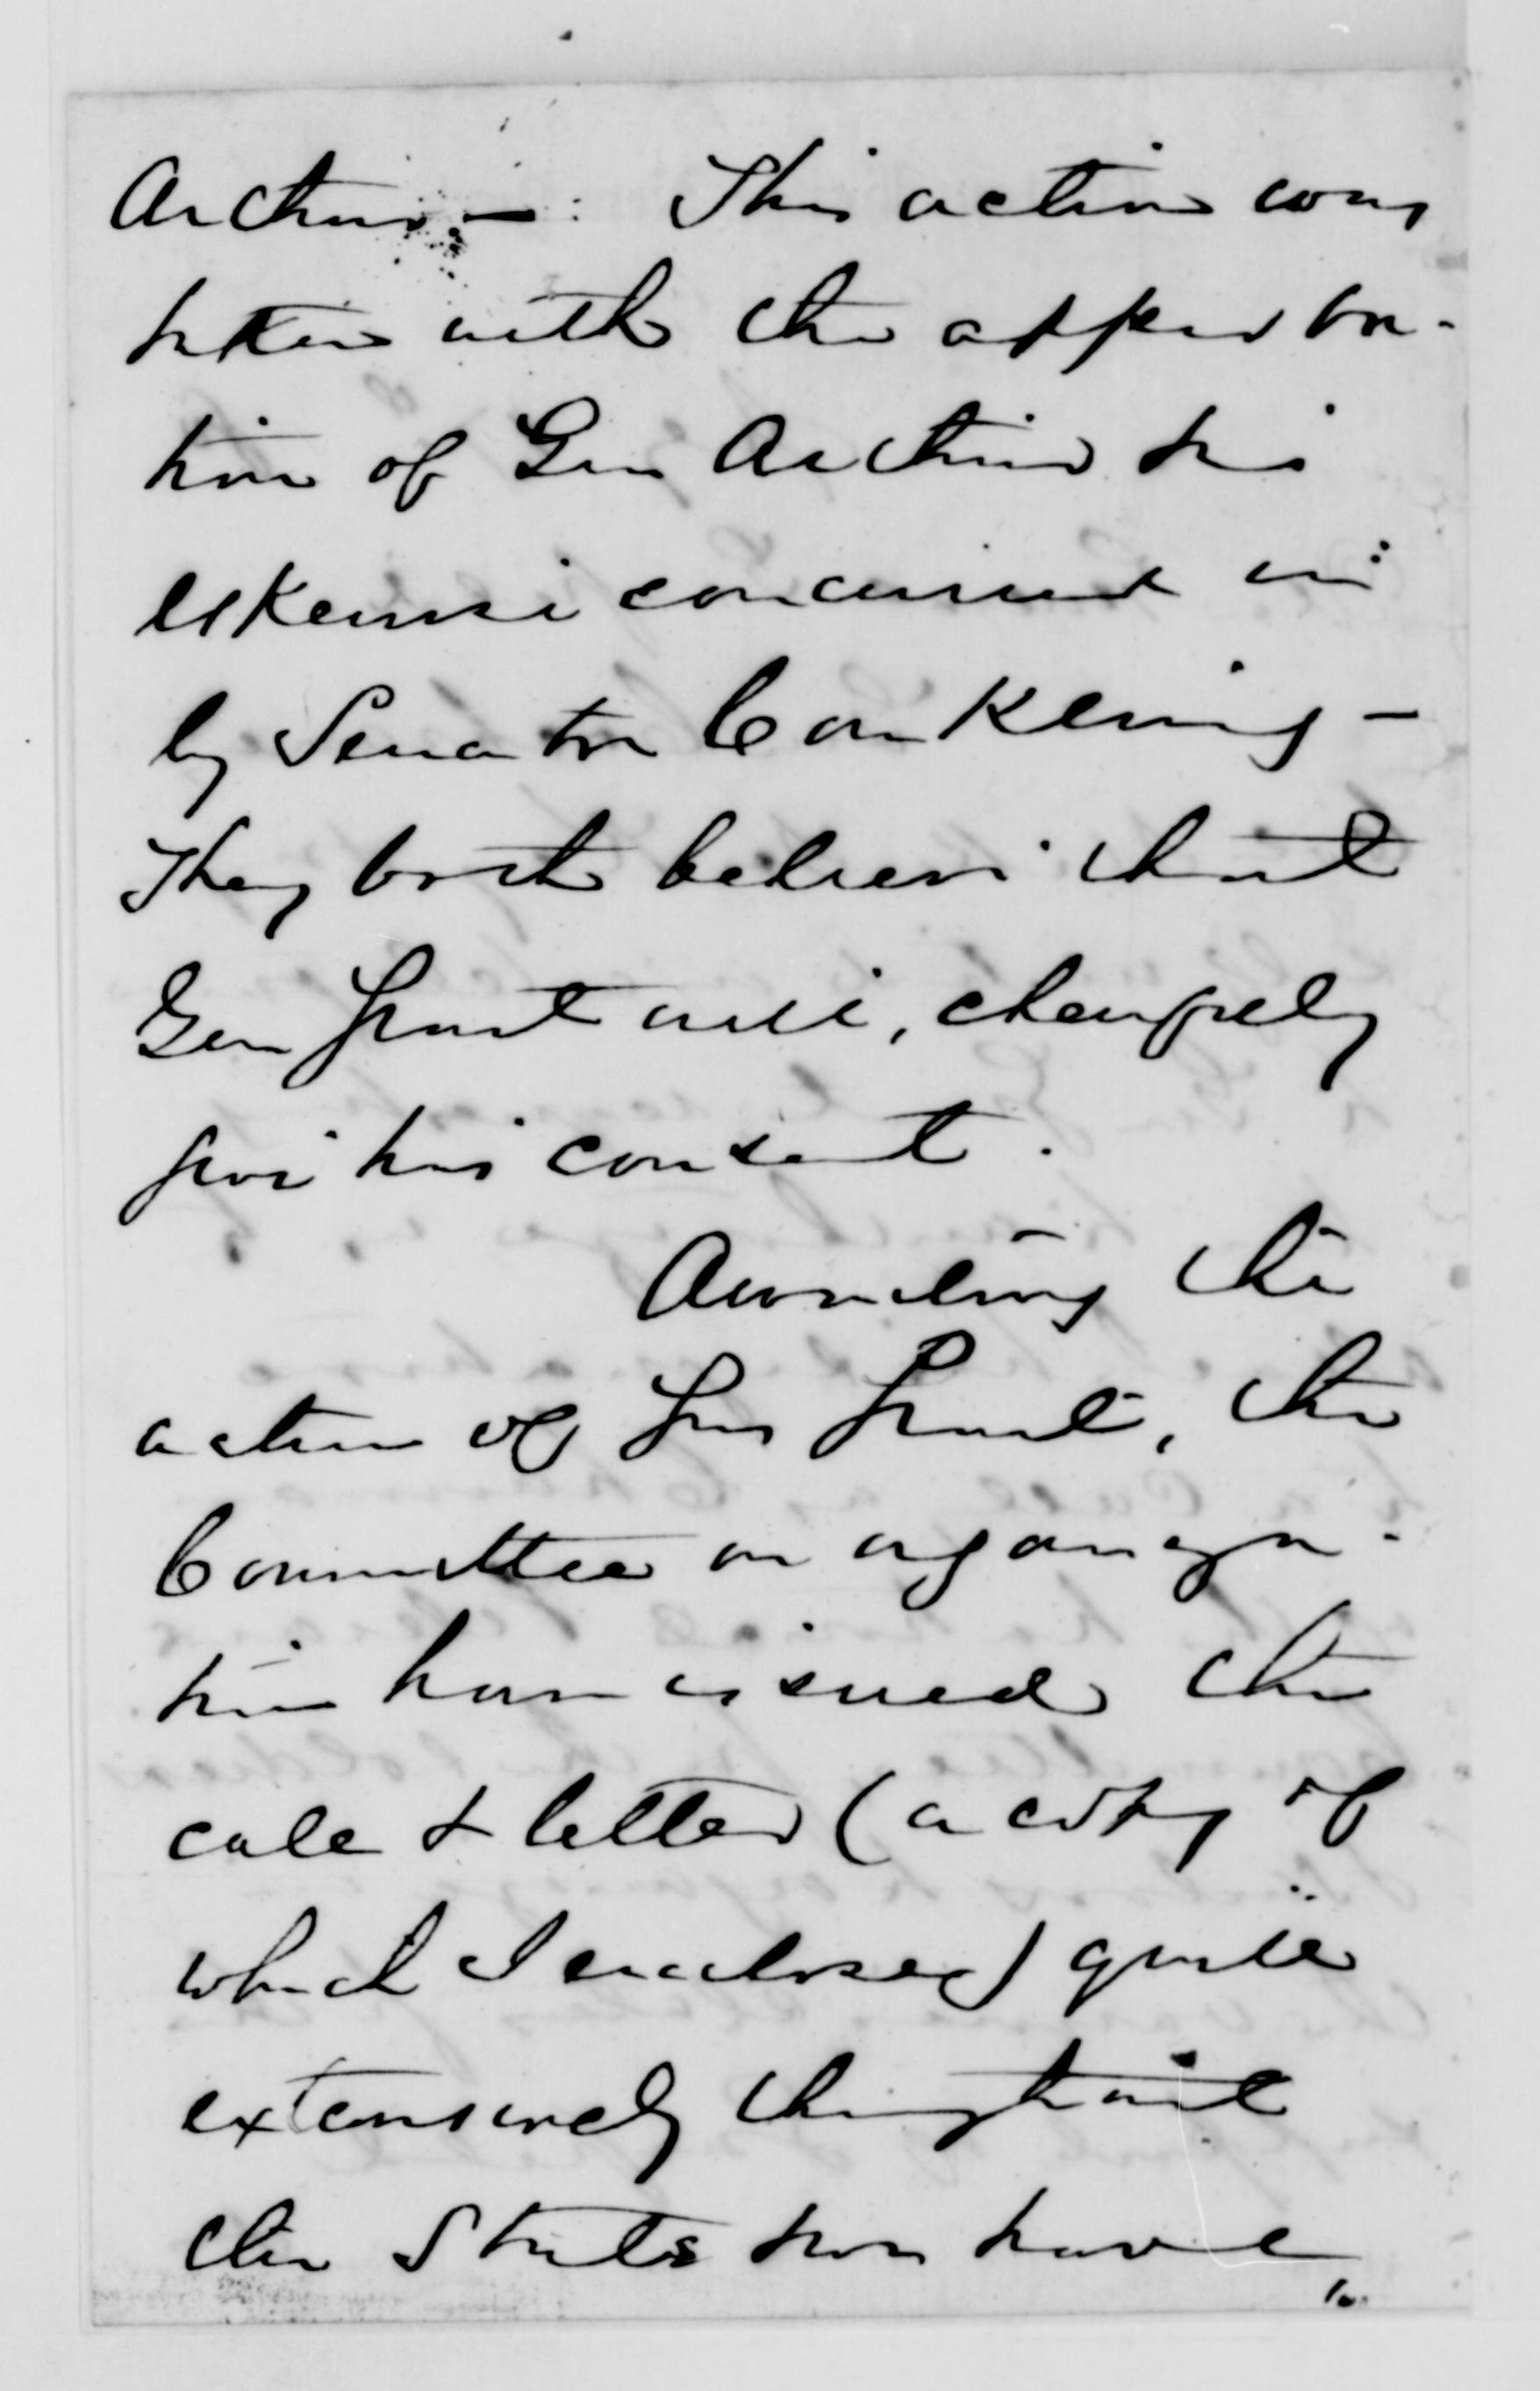 Arthur —: This action was
taken with the approba-
tion of Gen Arthur & is
likewise concurred in
by Senator Conkling —
They both believe that
Gen Grant will, cheerfully
give his consent.
Awaiting the
action of Gen Grant, the
Committee on organiza-
tion have issued the
call & letter (a copy of
which I enclosed) quite
extensively throughout
the State &
have